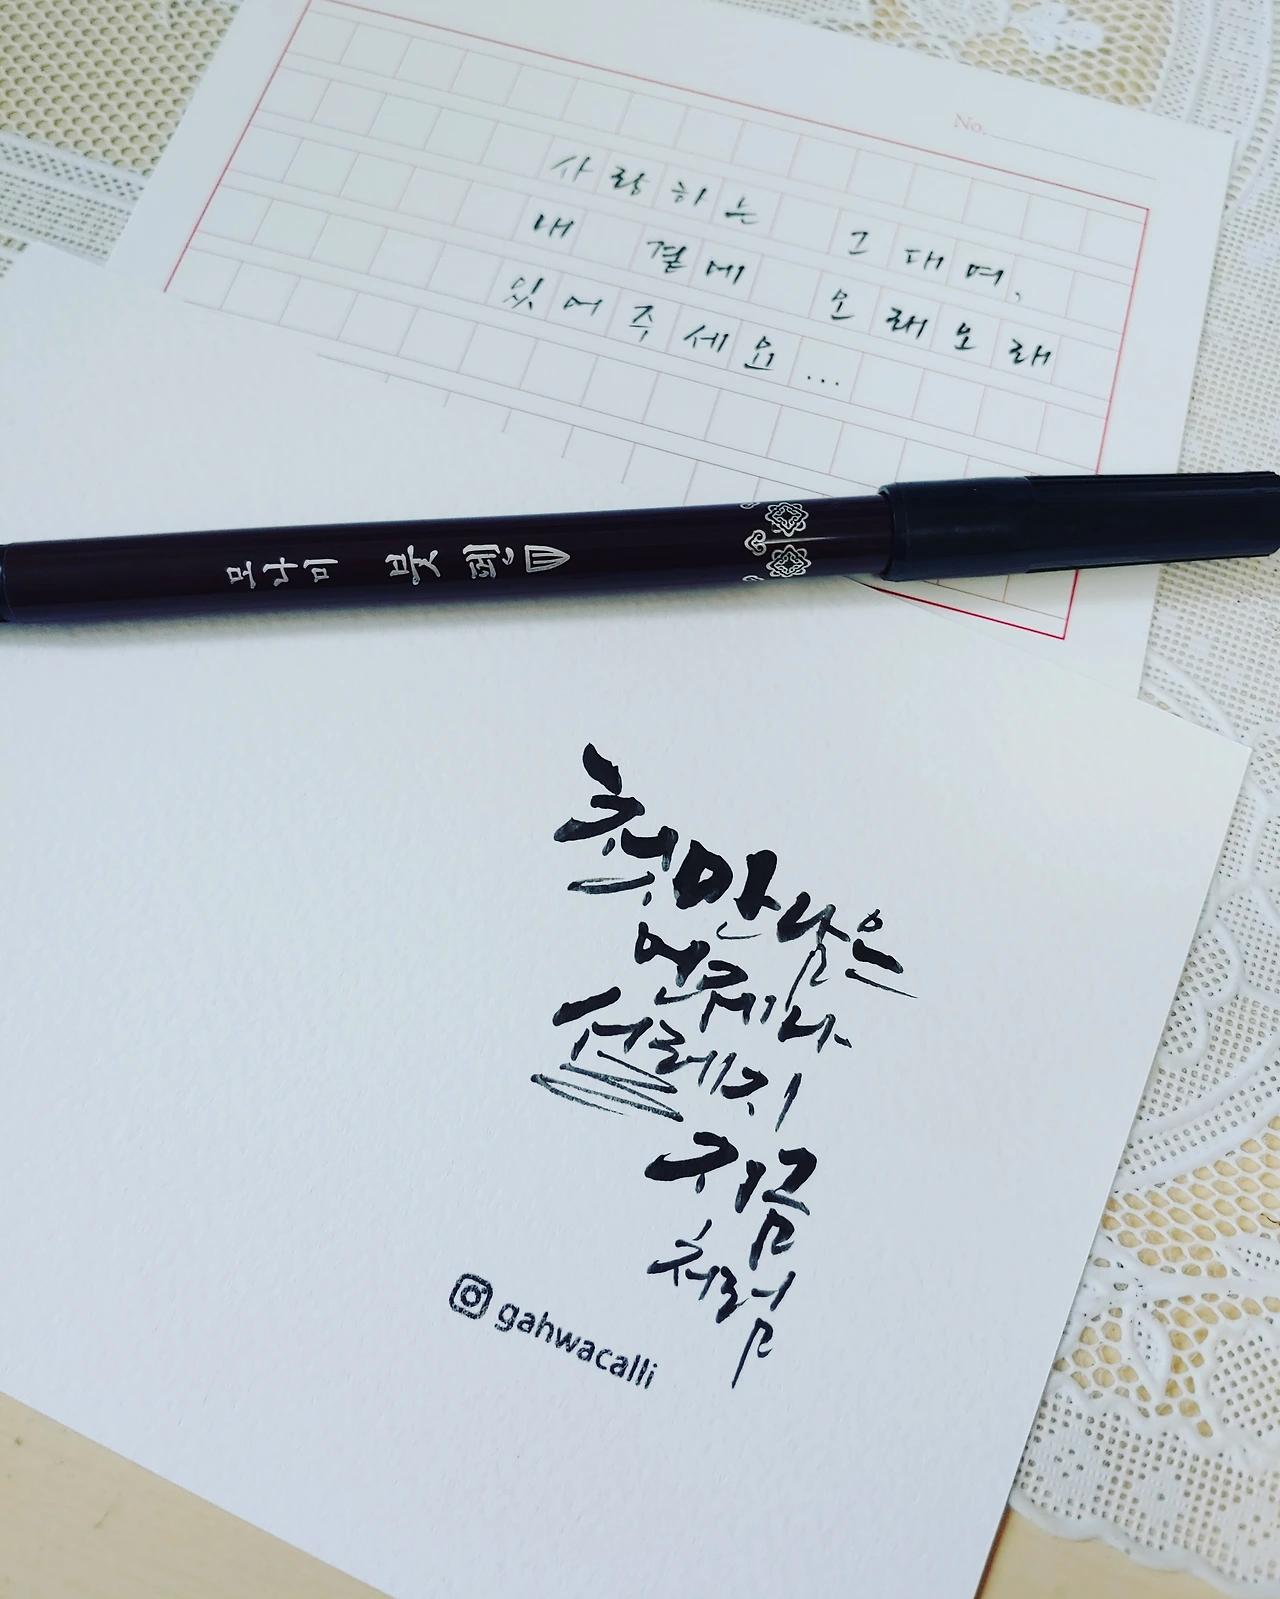 No.
사랑하는 그대여,
내 곁에 오래오래
있어주세요...
모나미 붓펜
첫만남은
언제나
설레지
지금
처럼
gahwacalli